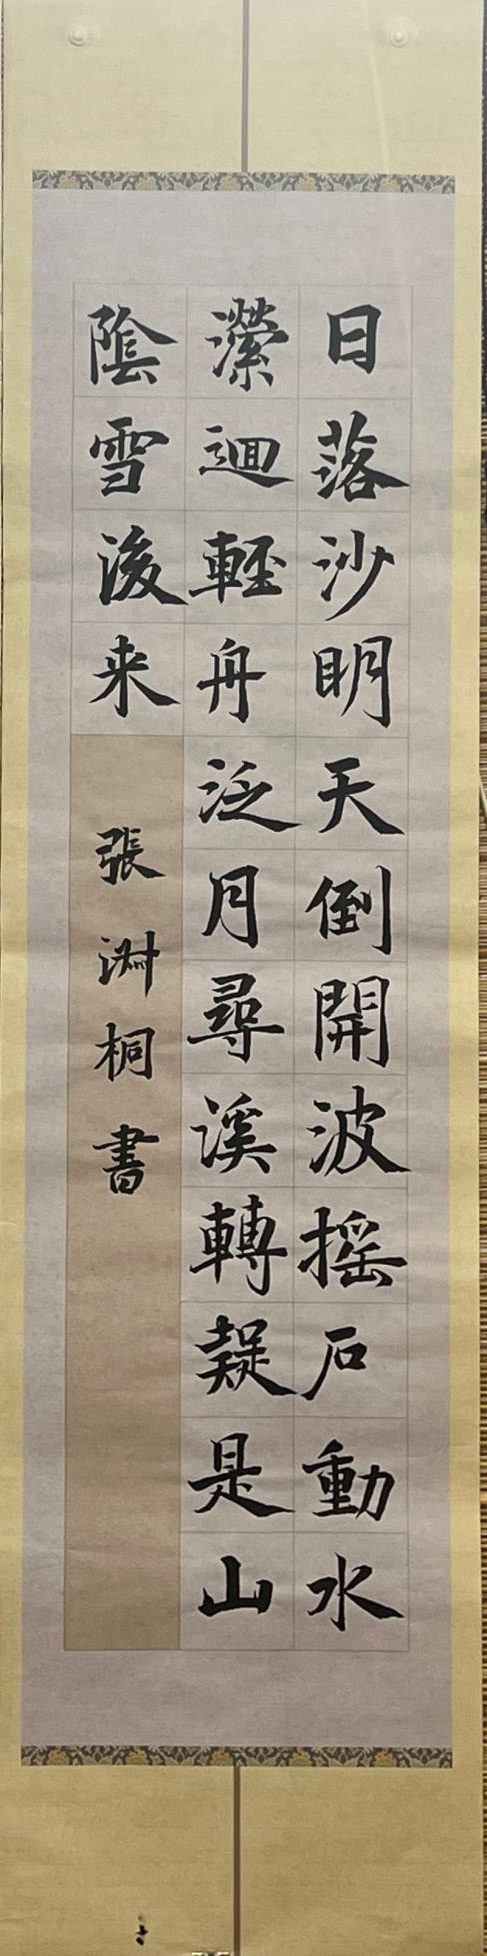 日落沙明天倒開波摇石動水
瀠迴輕舟泛月尋溪轉疑是山
陰雪後来
張淵桐書